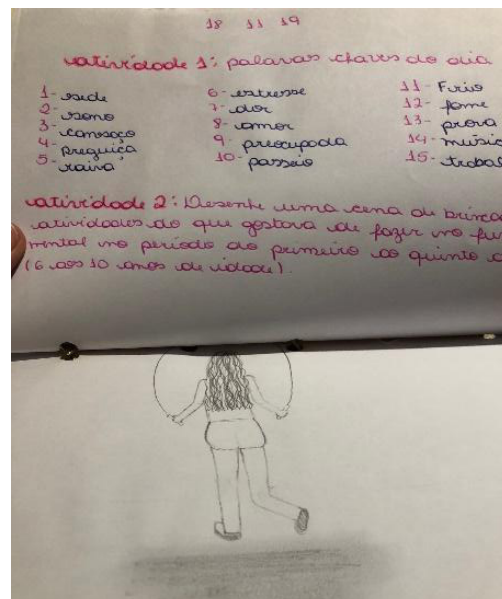 18 11 19
atividade 1: palavras chaves do dia
1- sede
2- sono
3- cansaço
4- preguiça
5- raiva
6- estresse
7- dor
8- amor
9- preocupada
10- passeio
11- Furio
12- fome
13- prova
14- músic
15- trabal
atividade 2: Desenhe uma cena de brinca
atividades do que gostava de fazer no fun
mental no período do primeiro ao quinto a
(6 aos 10 anos de idade).